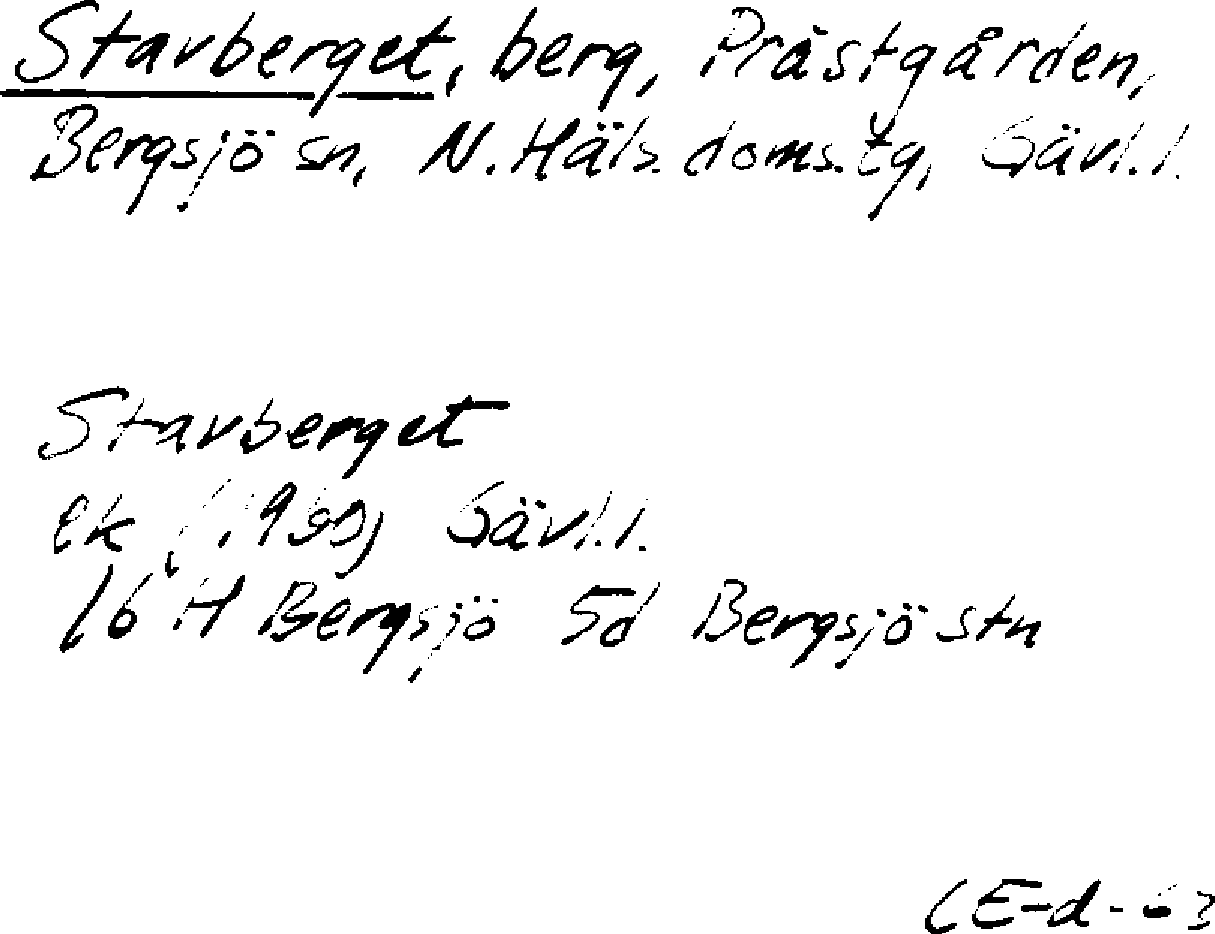 Stavberget, berg, Prästgården,
Bergsjö sn, N. Häls. doms.tg, Gävl.l.
Stavberget
ek Gävl.l.
16 H Bergsjö 5d Bergsjö stn